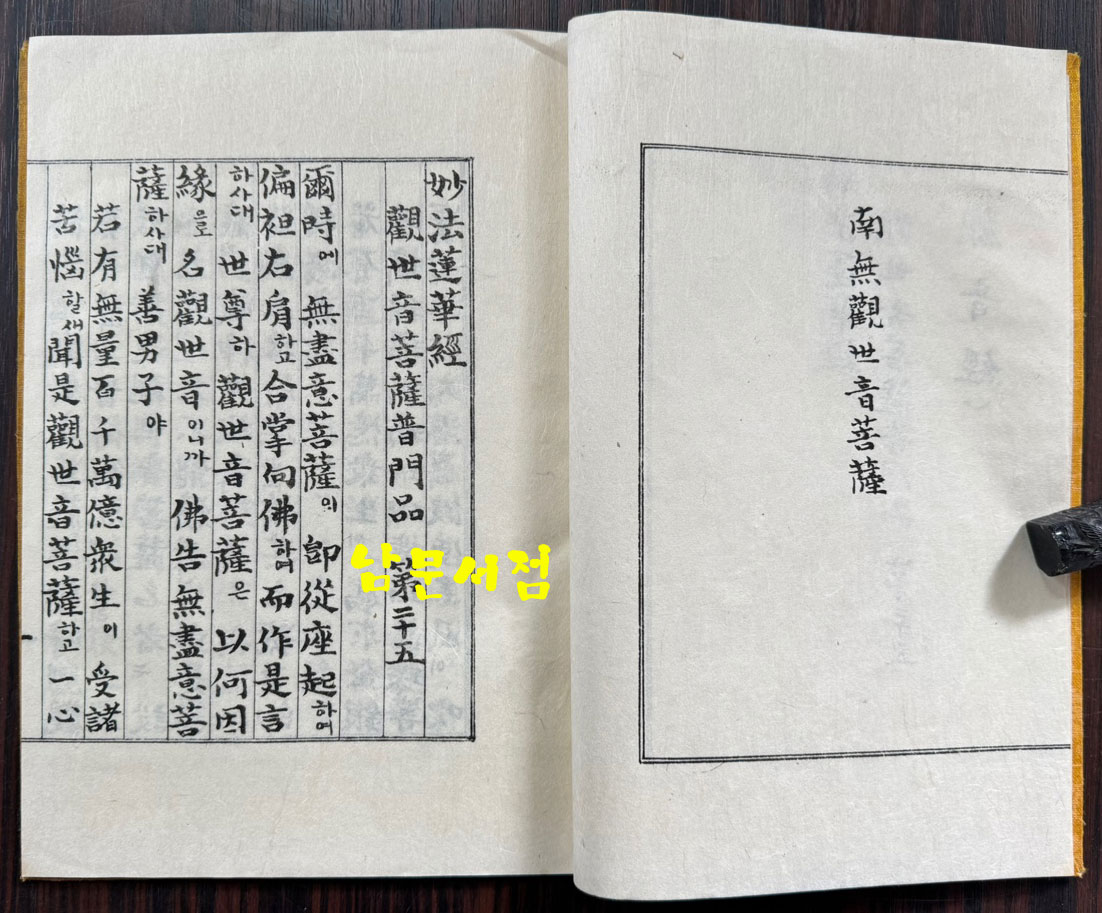 南無觀世音菩薩
妙法蓮華經
觀世音菩薩普門品 第二十五
爾時에 無盡意菩薩이 卽從座起하며
偏袒右肩하고合掌向佛하며而作是言
하사대 世尊하 觀世音菩薩은 以何因
緣으로 名觀世音이니까 佛告無盡意菩
薩하사대 善男子야
若有無量百千萬億衆生이 受諸
苦惱할새聞是觀世音菩薩하고 一心
남문서점